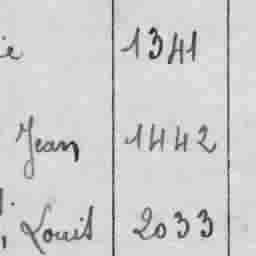 ie 1341
Jean 1442
, Louis 2033